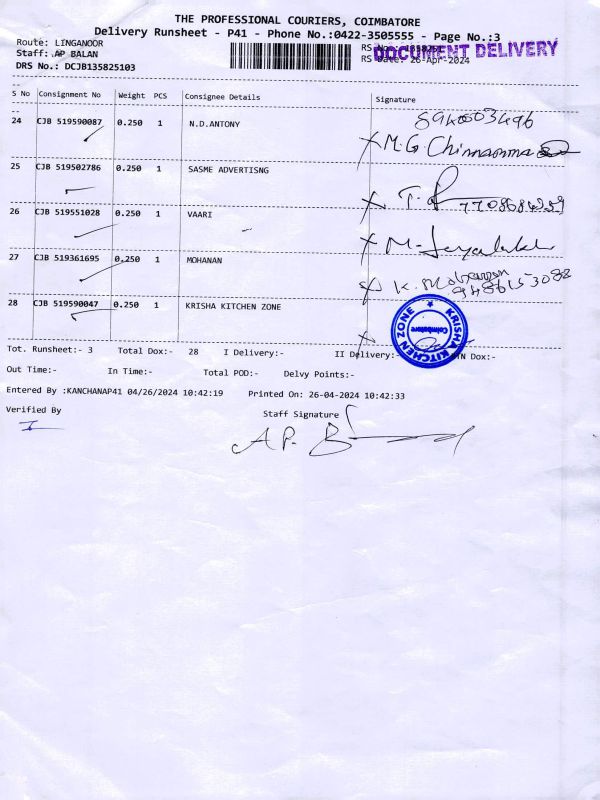 THE PROFESSIONAL COURIERS, COIMBATORE
Delivery Runsheet - P41 - Phone No.:0422-3505555 - Page No.:3
Route: LINGANOOR
Staff: AP BALAN
DRS No.: DCJB135825103
RS No.:
DOCUMENT DELIVERY
RS Date: 26-Apr-2024
S No Consignment No Weight PCS Consignee Details Signature
24 CJB 519590087 0.250 1 N.D.ANTONY
8940003496
M.G. Chinnamma
25 CJB 519502786 0.250 1 SASME ADVERTISNG
26 CJB 519551028 0.250 1 VAARI
27 CJB 519361695 0.250 1 MOHANAN
K. Mohanan
28 CJB 519590047 0.250 1 KRISHA KITCHEN ZONE
KRISHA KITCHEN ZONE
Coimbatore
Tot. Runsheet:- 3 Total Dox:- 28 I Delivery:- II Delivery:- Dox:-
Out Time:- In Time:- Total POD:- Delvy Points:-
Entered By :KANCHANAP41 04/26/2024 10:42:19 Printed On: 26-04-2024 10:42:33
Verified By Staff Signature
A.P. B